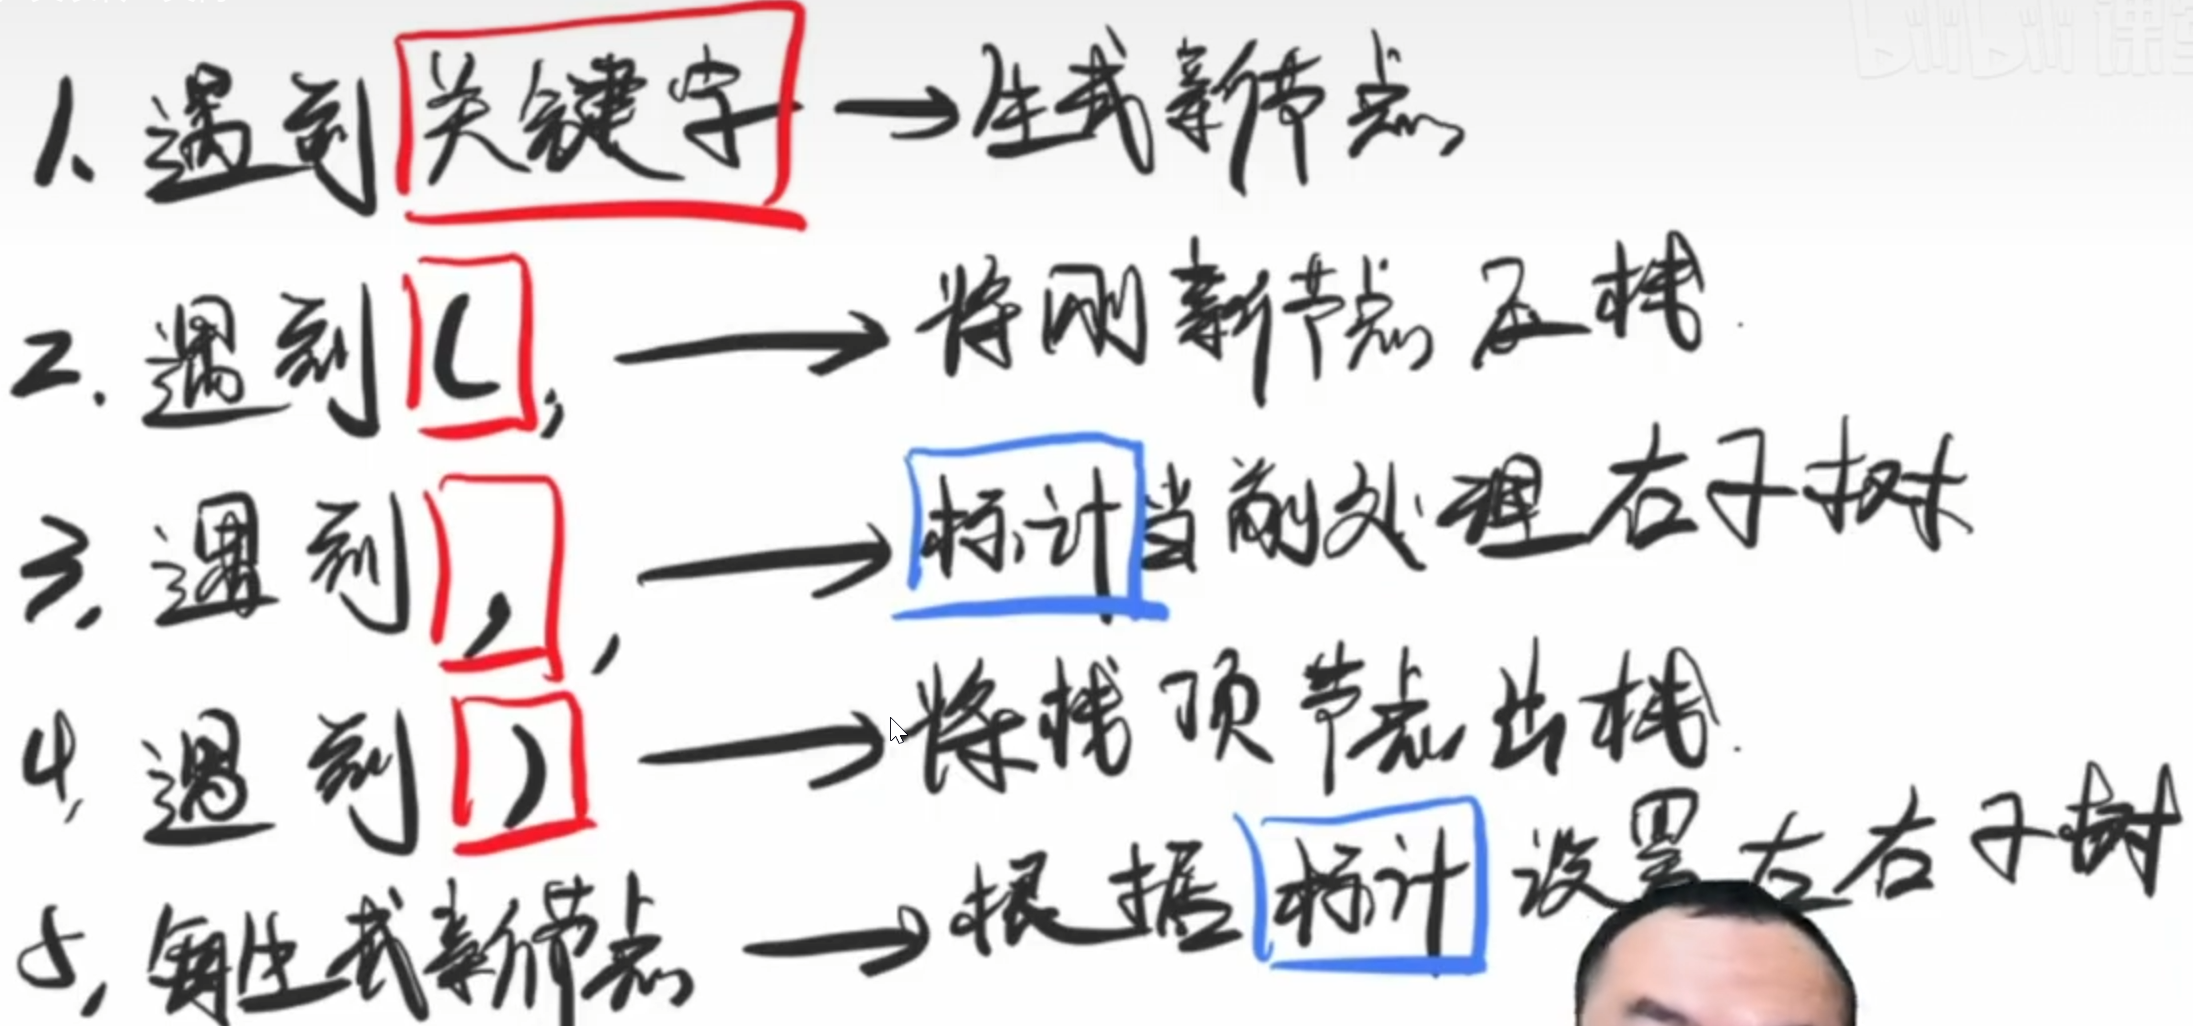 bilibili 课堂
1、遇到 关键字 → 生成新节点
2. 遇到 (, → 将刚新节点压栈.
3. 遇到 , , → 标记当前处理右子树
4, 遇到 ) → 将栈顶节点出栈.
5, 每生成新节点 → 根据 标记 设置左右子树